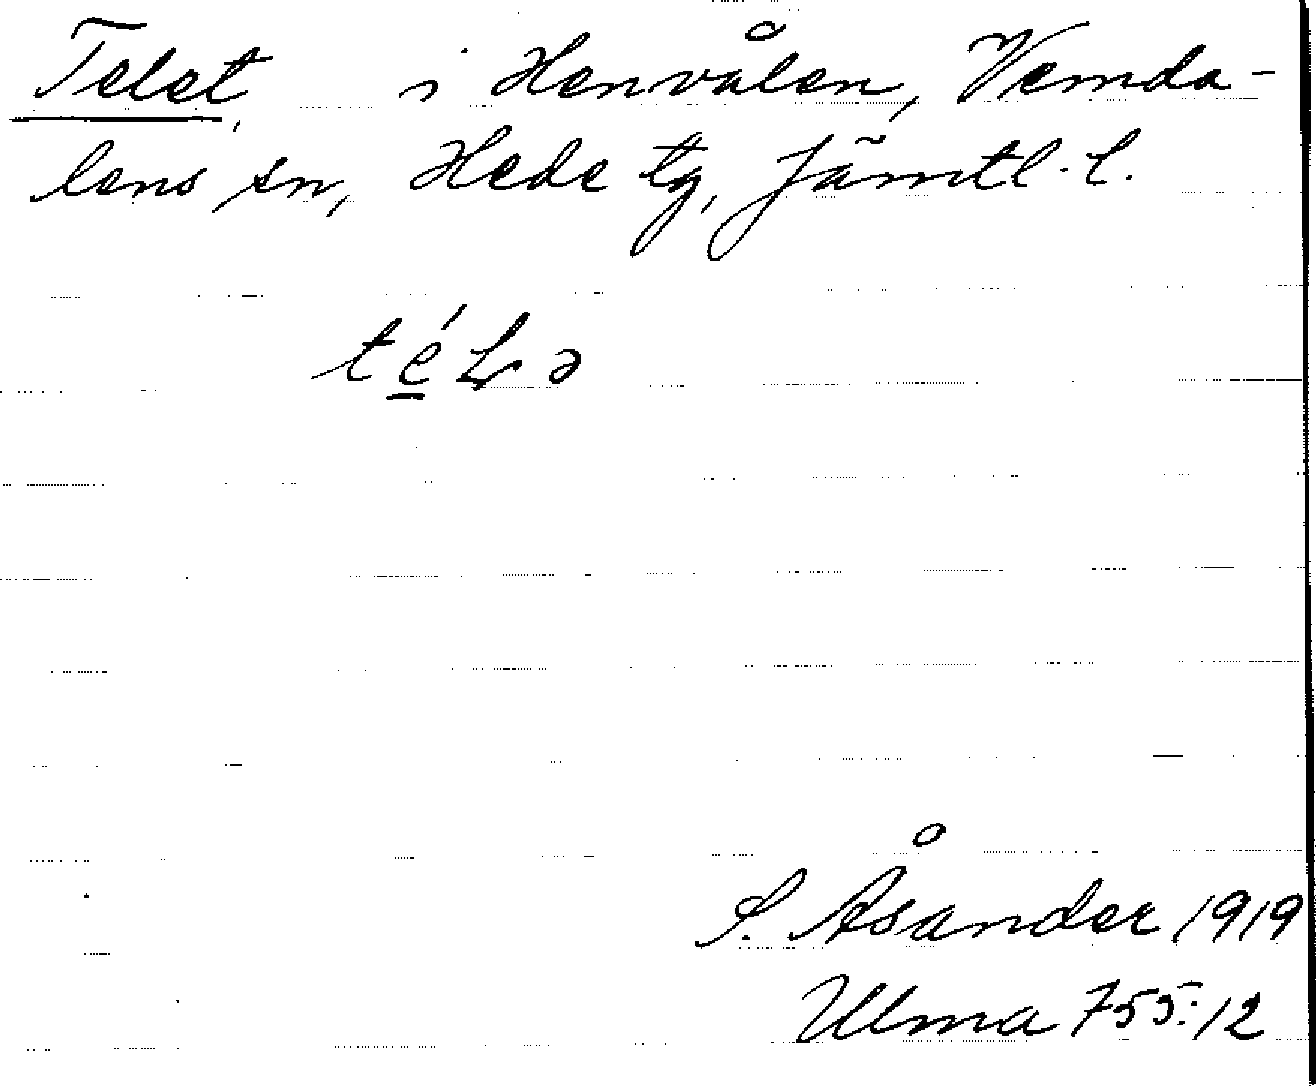 Telet, i Henvålen, Vemda-
lens sn, Hede tg, Jämtl. l.
téLə
S. Åsander 1919
Ulma 755:12